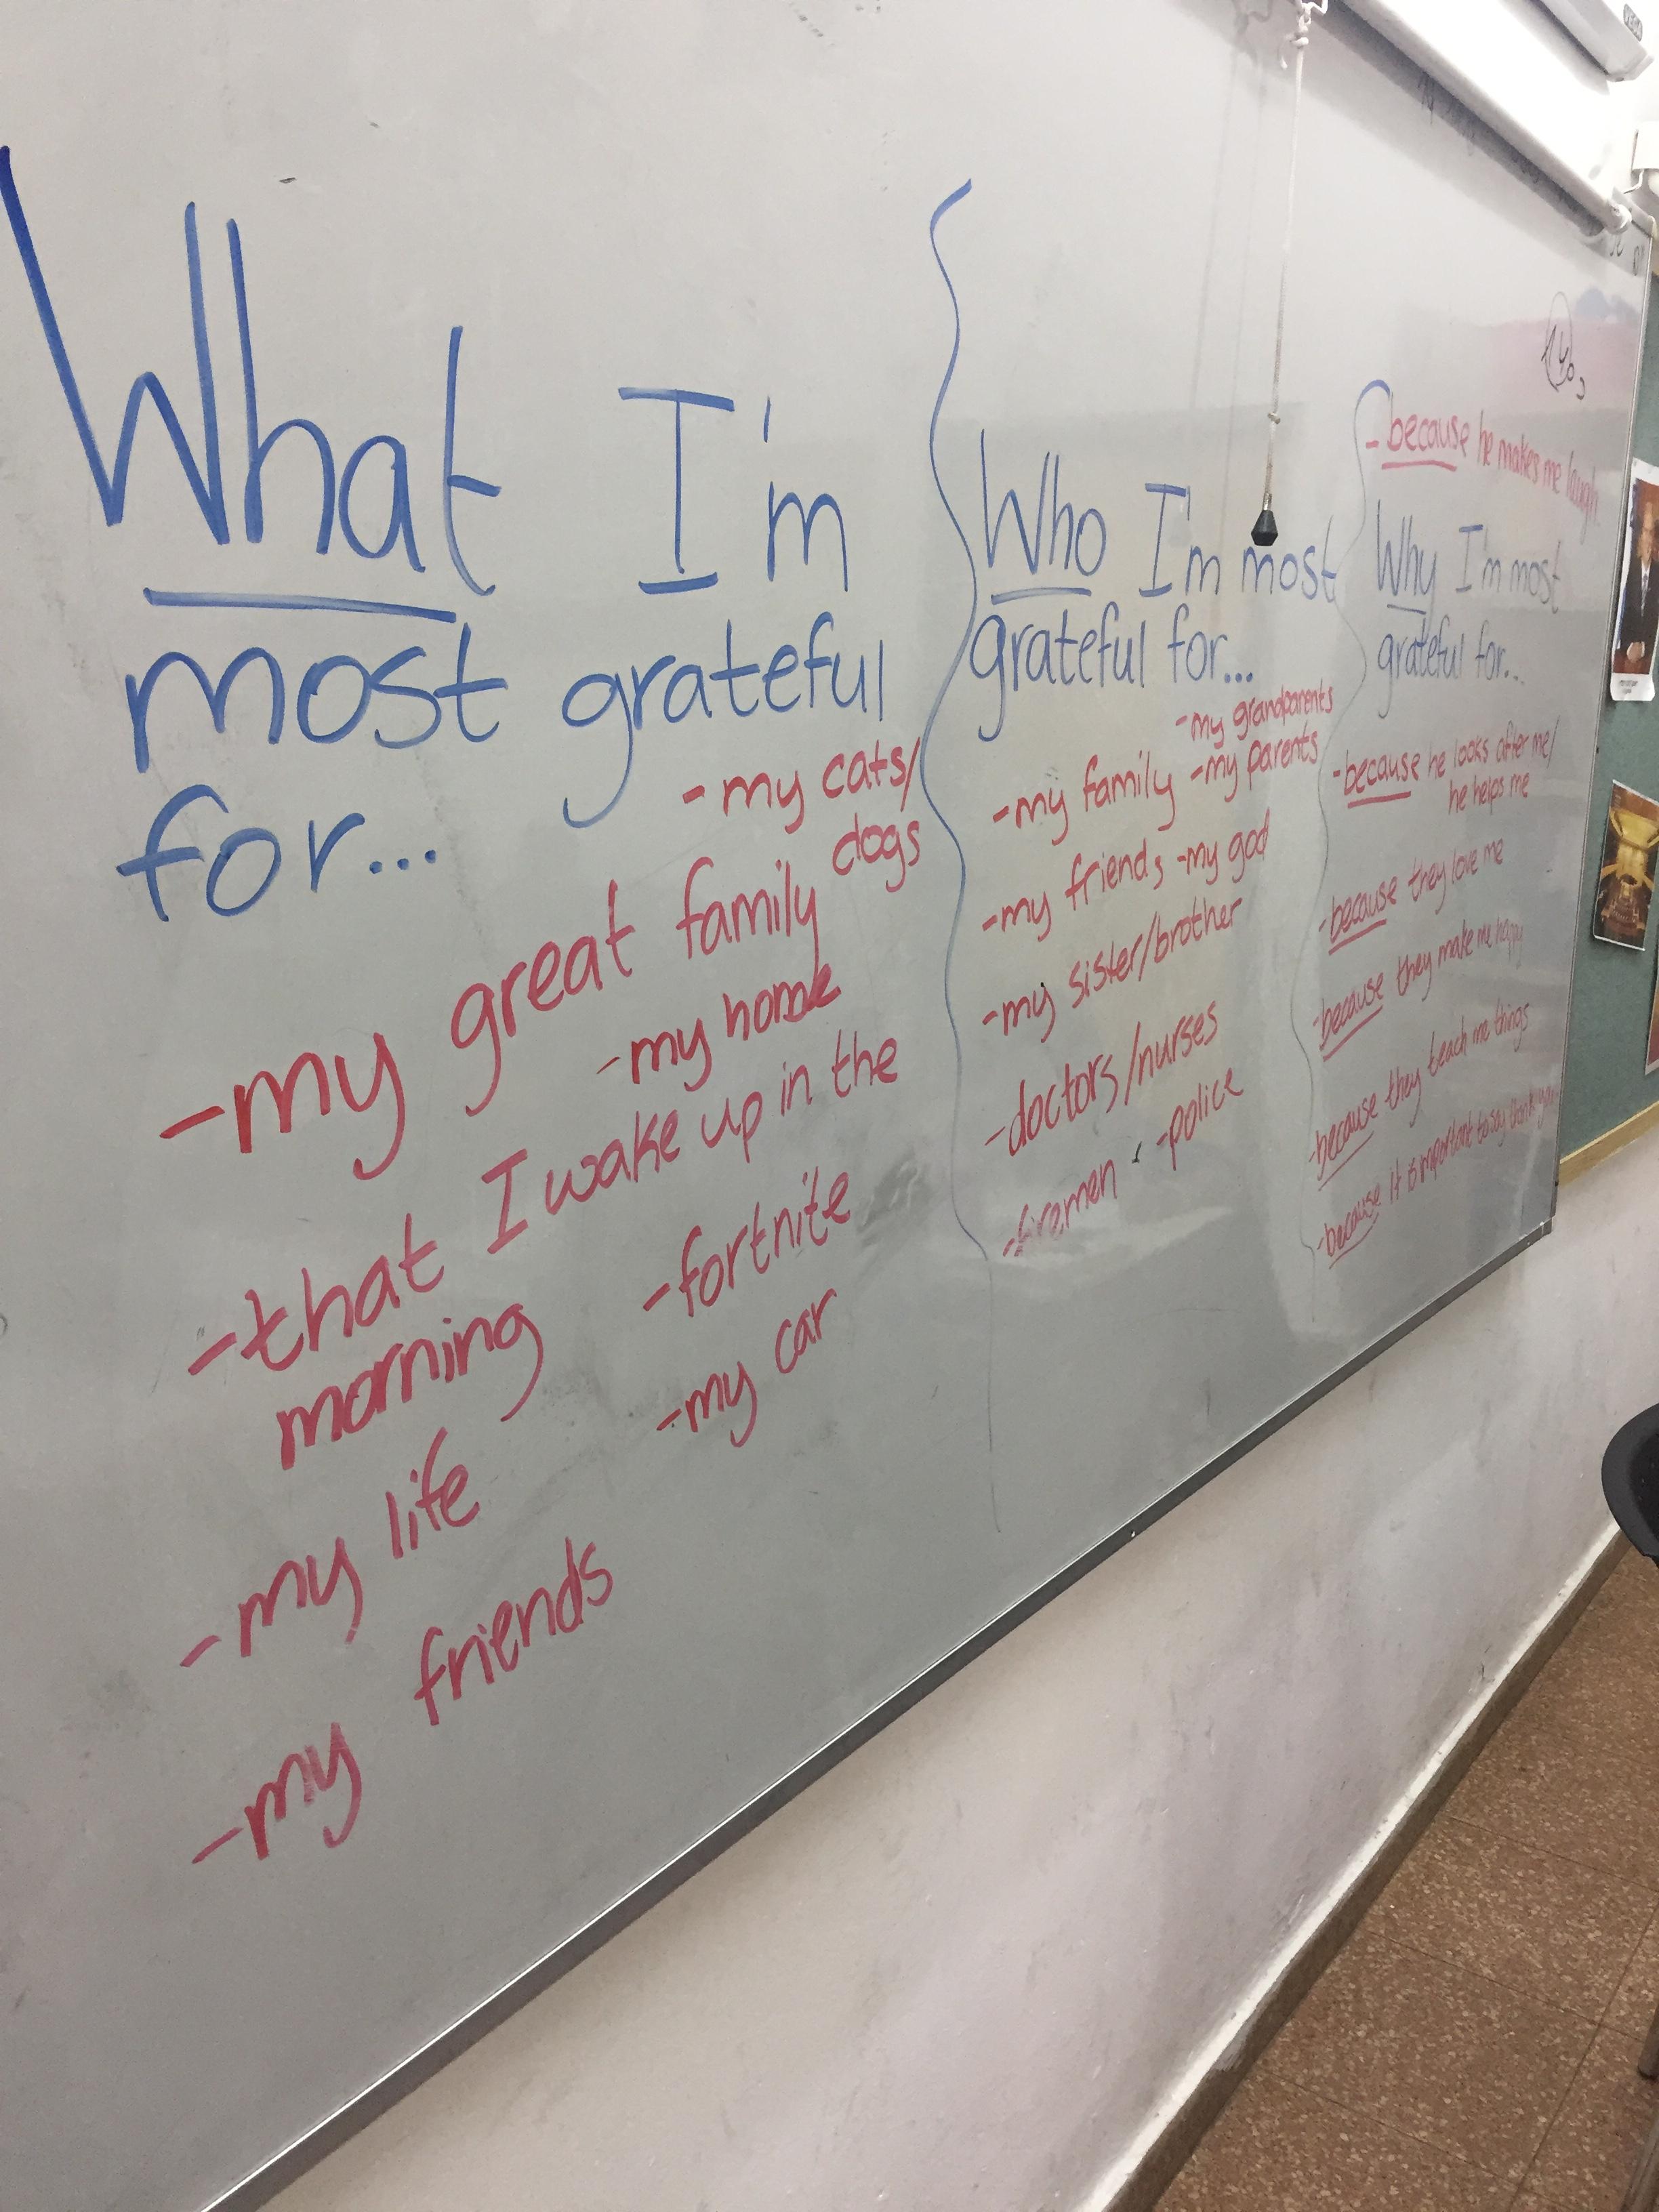 What I'm
most grateful
for...
- my cats/
dogs
- my great family
- my home
- that I wake up in the
morning
- fortnite
- my life
- my car
- my friends
Who I'm most
grateful for...
- my grandparents
- my family - my parents
- my friends - my god
- my sister/brother
- doctors/nurses
- firemen - police
- because he makes me laugh
Why I'm most
grateful for...
- because he looks after me/
he helps me
- because they love me
- because they make me happy
- because they teach me things
- because it is important to say thank you